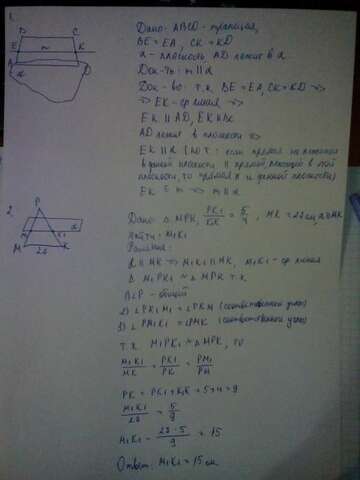 1.
B C
E m K
A D
α
Дано: ABCD - трапеция,
BE = EA, CK = KD
α - плоскость, AD лежит в α
Док-ть: m || α
Док-во: т.к. BE = EA, CK = KD =>
=> EK - ср. линия =>
EK || AD, EK || BC
AD лежит в плоскости =>
EK || α (по т: если прямая не лежащая
в данной плоскости || прямой, лежащей в этой
плоскости, то прямая || и данной плоскости)
EK ∈ m => m || α
2.
P
M1 K1 α
M 27 K
Дано: Δ MPK, PK1/KK1 = 5/4, MK = 27 см, α || MK
Найти: M1K1
Решение:
α || MK => M1K1 || MK, M1K1 - ср. линия
Δ M1PK1 ~ Δ MPK т.к.
1) ∠P - общий
2) ∠PK1M1 = ∠PKM (соответственные углы)
3) ∠PM1K1 = ∠PMK (соответственные углы)
т.к. M1PK1 ~ Δ MPK, то
M1K1/MK = PK1/PK = PM1/PM
PK = PK1 + K1K = 5+4 = 9
M1K1/27 = 5/9
M1K1 = 27·5/9 = 15
Ответ: M1K1 = 15 см